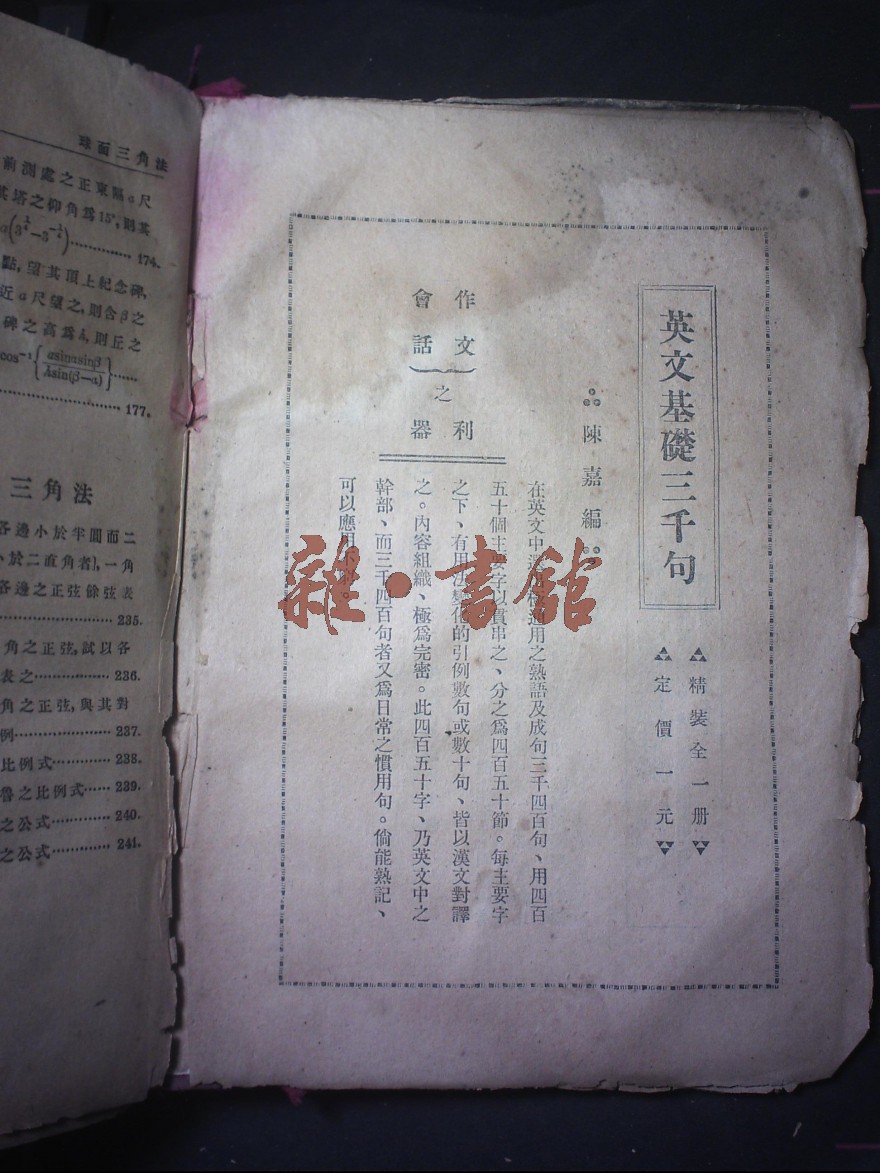 球面三角法
前測處之正東隔a尺
其塔之仰角爲15°,則其
174.
點,望其頂上紀念碑,
近a尺望之,則含β之
碑之高爲h,則丘之
cos⁻¹{asinαsinβ/hsin(β-α)}
177.
三角法
各邊小於半圓而二
小於二直角者),一角
各邊之正弦餘弦表
235.
角之正弦,試以各
表之 236.
角之正弦,與其對
例 237.
比例式 238.
魯之比例式 239.
之公式 240.
之公式 241.
英文基礎三千句
精裝全一册
定價一元
陳嘉編
作文
會話
之利器
在英文中選 通用之熟語及成句三千四百句、用四百
五十個主要字以貫串之、分之爲四百五十節。每主要字
之下、有用法變化的引例數句或數十句、皆以漢文對譯
之。內容組織、極爲完密。此四百五十字、乃英文中之
幹部、而三千四百句者又爲日常之慣用句。倘能熟記、
可以應用
雜·書館